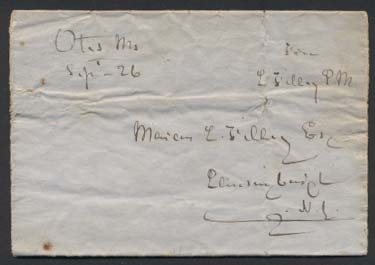 Otis Ms
Sept - 26
Free
L Filley P M
Marcus L. Filley Esq
Lansingburgh
N.Y.